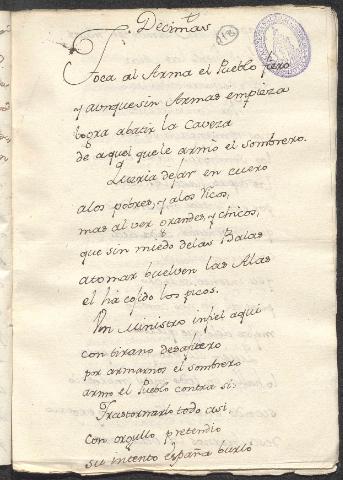 Decimas
118
Toca al Arma el Pueblo fiero
y aunque sin Armas empieza
logra abatir la Caveza
de aquel que le armó el sombrero.
Queria dejar en cuero
alos pobres, y alos Ricos,
mas al ver grandes, y chicos,
que sin miedo delas Balas
atomar buelven las Alas
el ha cojido los picos.
Un Ministro infiel aqui
con tirano desafuero
por armarnos el sombrero
armo el Pueblo contra si.
Trastornarlo todo asi,
con orgullo pretendio
su intento España burló